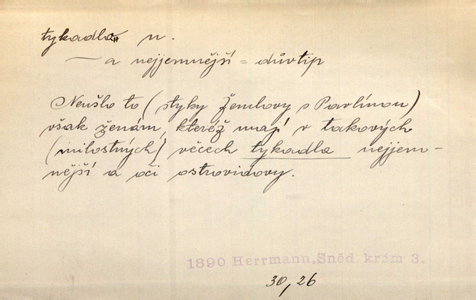 tykadla n.
— a nejjemnější = důvtip
Neušlo to (styky Žemlovy s Pavlínou)
však ženám, kteréž mají v takových
(milostných) věcech tykadla nejjem-
nější a oči ostrovidovy.
1890 Herrmann, Sněd. krám 3.
30,26